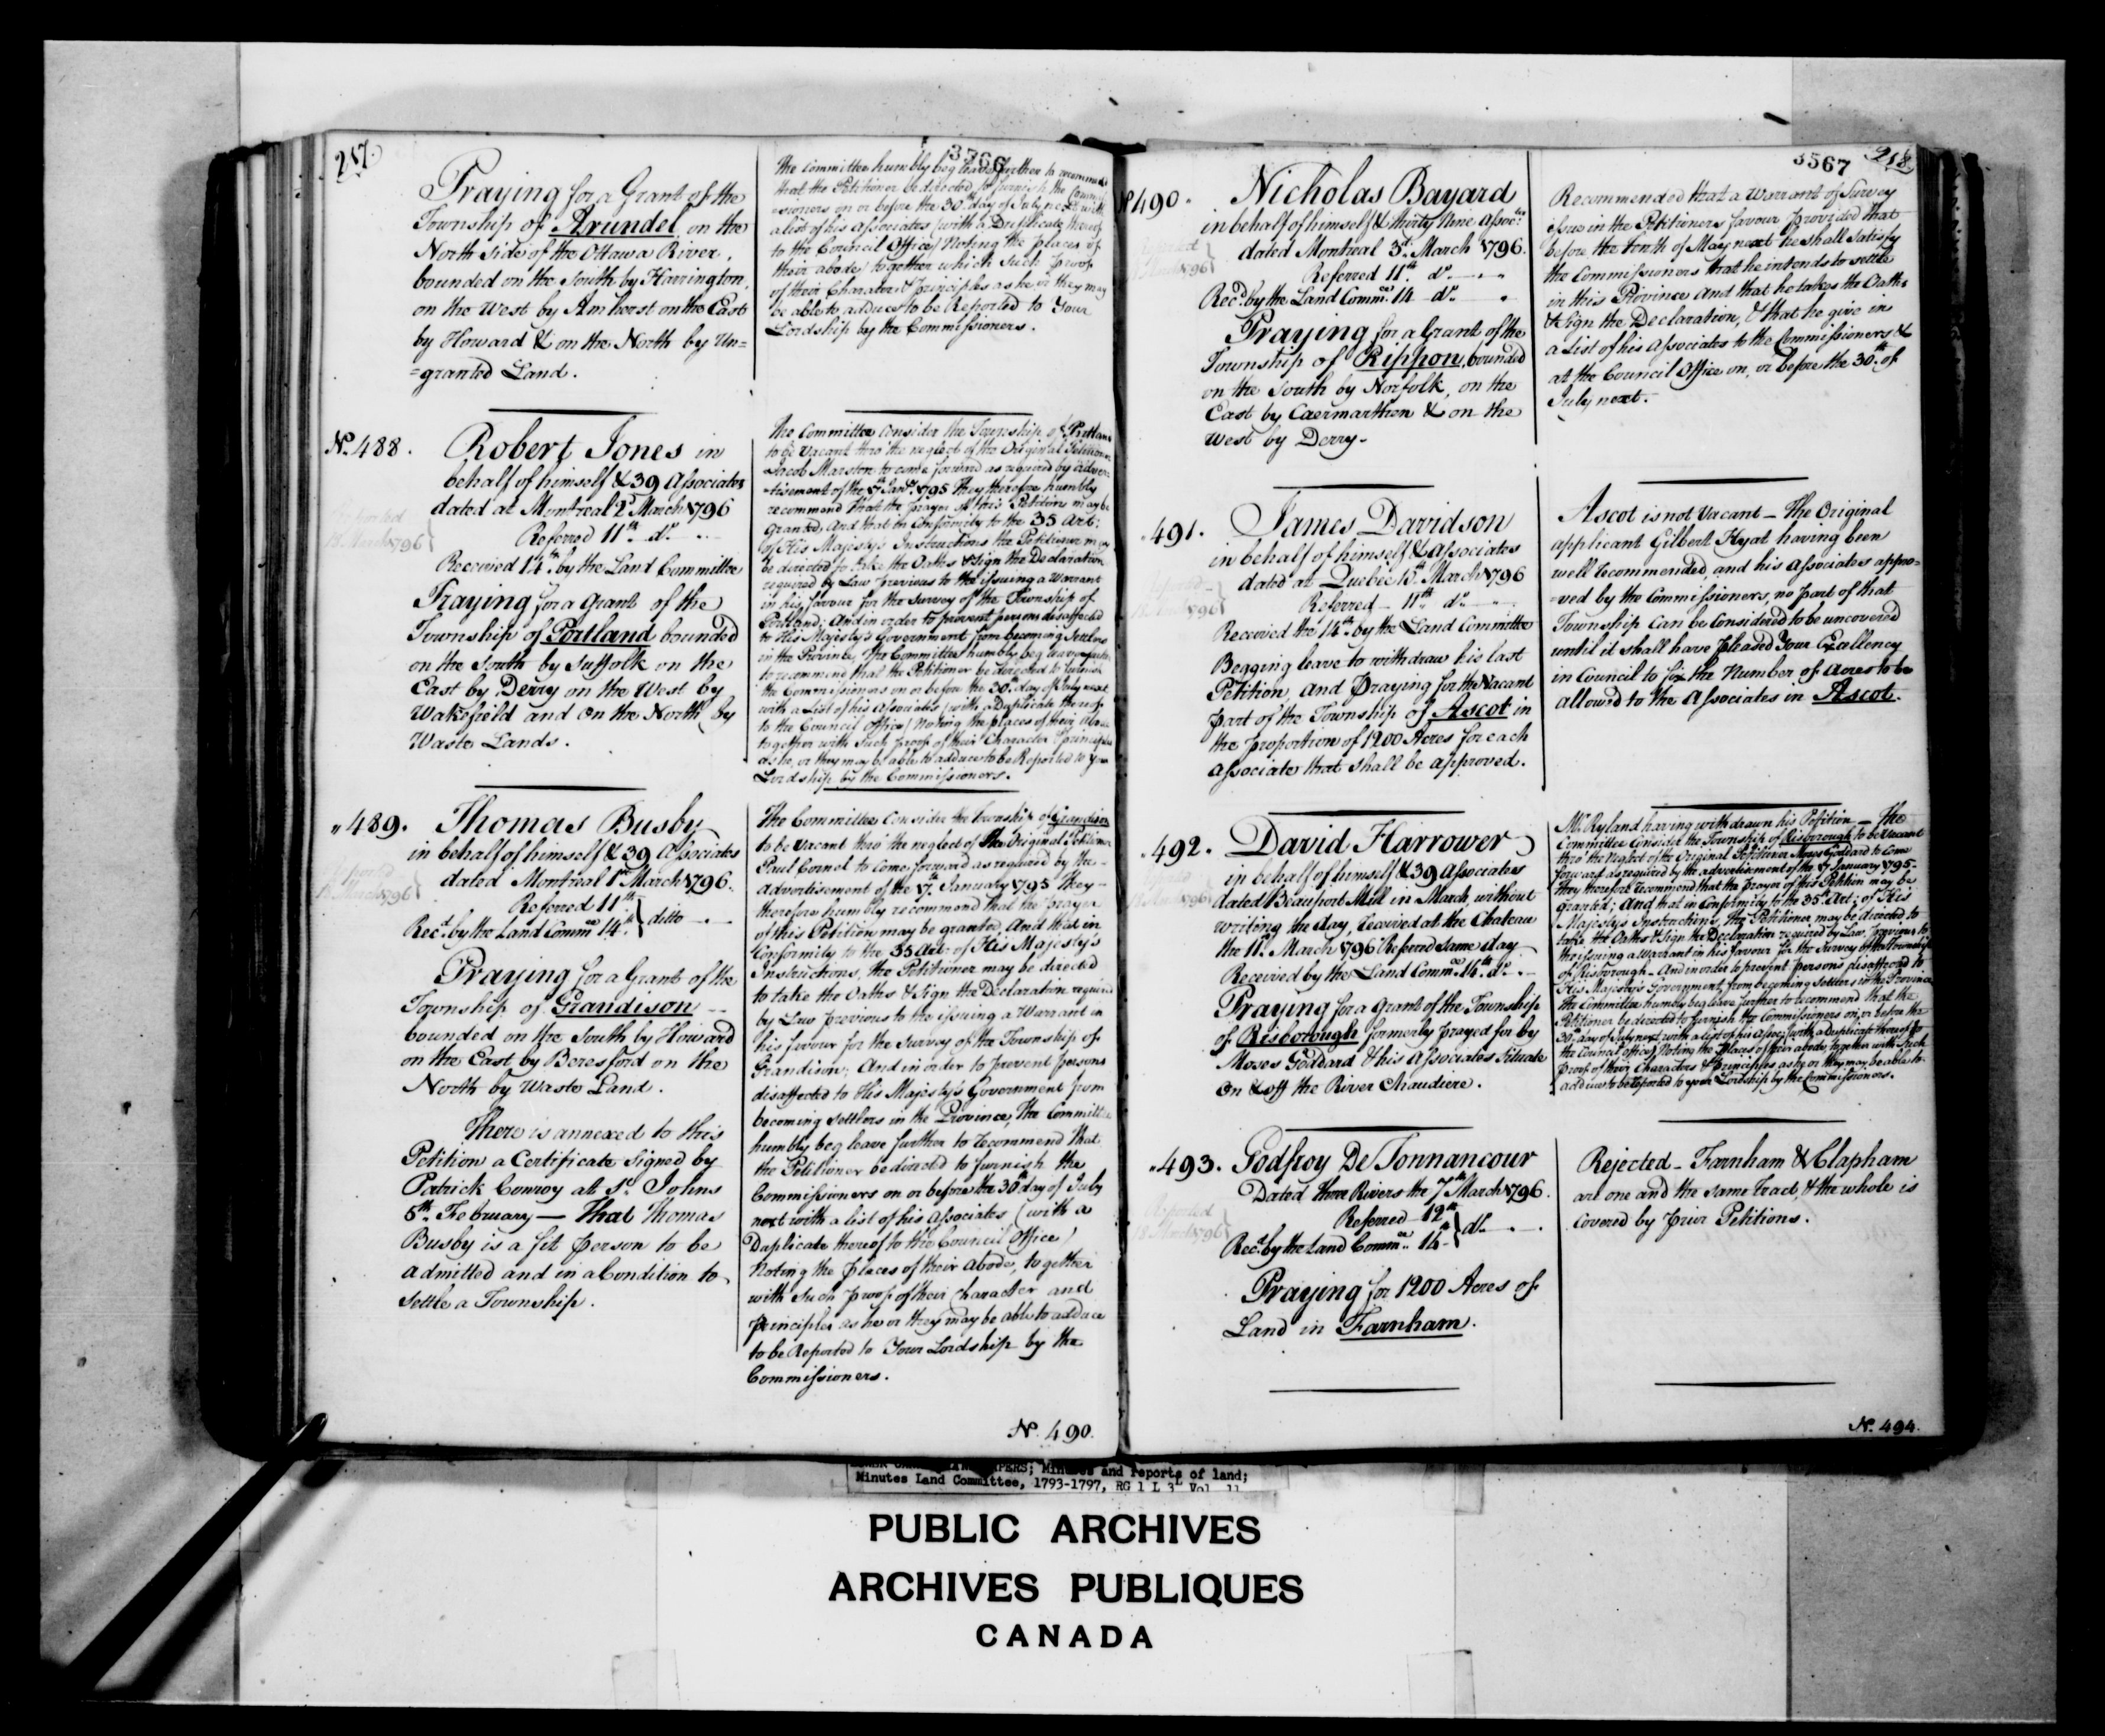 217.
3566
Praying for a Grant of the
Township of Arundel, on the
North side of the Ottawa River,
bounded on the South by Harrington,
on the West by Amherst on the East
by Howard & on the North by Un=
=granted Land.
The Committee humbly beg leave further to recommend
that the Petitioner be directed to furnish the Commis
=sioners on or before the 30th day of July next with
a list of his Associates (with a Duplicate thereof
to the Council Office) Noting the places of
their abode, together which such proof
of their Character & Principles as he or they may
be able to adduce to be Reported to Your
Lordship by the Commissioners.
No. 488.
Robert Jones in
behalf of himself & 39 Associates
dated at Montreal 2d March 1796
Referred 11th do
Received 14th by the Land Committee
Praying for a Grant of the
Township of Portland bounded
on the South by Suffolk on the
East by Derry on the West by
Wakefield and on the North by
Waste Lands.
18 March 1796
The Committee consider the Township of Portland
to be Vacant thro' the neglect of the Original Petitioner
Jacob Marston to come forward as required by Adver
=tisement of the 17th Jany. 1795 They therefore humbly
recommend that the prayer of this Petition may be
Granted, And that in Conformity to the 35 Art:
of His Majesty's Instructions the Petitioner may
be directed to take the Oaths & Sign the Declaration
required by Law previous to the issuing a Warrant
in his favour for the Survey of the Township of
Portland; And in order to prevent persons disaffected
to His Majesty's Government from becoming Settlers
in the Province, The Committee humbly beg leave further
to recommend that the Petitioner be directed to furnish
the Commissioners on or before the 30th day of July next
with a List of his Associates (with a Duplicate thereof
to the Council Office) Noting the places of their Abode
together with such proof of their Character & principles
as he, or they may be able to adduce to be Reported to Your
Lordship by the Commissioners.
" 489.
Thomas Busby
in behalf of himself & 39 Associates
dated Montreal 1st March 1796.
Referred 11th
Recd. by the Land Commee 14th } ditto
Praying for a Grant of the
Township of Grandison
bounded on the South by Howard
on the East by Beresford on the
North by Waste Land.
There is annexed to this
Petition a Certificate Signed by
Patrick Conroy at St. Johns
5th February — That Thomas
Busby is a fit person to be
admitted and in a Condition to
settle a Township.
March 1796
The Committee Consider the Township of Grandison
to be Vacant thro' the neglect of the Original Petitioner
Paul Cornel to Come forward as required by the
Advertisement of the 17th January 1795 They
therefore humbly recommend that the prayer
of this Petition may be granted, And that in
Conformity to the 35 Art: of His Majesty's
Instructions, the Petitioner may be directed
to take the Oaths & Sign the Declaration required
by Law previous to the issuing a Warrant in
his favour for the Survey of the Township of
Grandison; And in order to prevent persons
disaffected to His Majesty's Government from
becoming Settlers in the Province, The Committee
humbly beg leave further to recommend that
the Petitioner be directed to furnish the
Commissioners on or before the 30th day of July
next with a list of his Associates (with a
Duplicate thereof to the Council Office)
Noting the places of their abode, together
with such proof of their Character and
principles as he or they may be able to adduce
to be Reported to Your Lordship by the
Commissioners.
No. 490.
3567
218
No 490.
Nicholas Bayard
in behalf of himself & thirty Nine Assoctes
dated Montreal 3d March 1796.
Referred 11th do
Recd. by the Land Commee 14 do "
Praying for a Grant of the
Township of Rippon, bounded
on the South by Norfolk, on the
East by Caermarthen & on the
West by Derry.
Recommended that a Warrant of Survey
issue in the Petitioners favour provided that
before the tenth of May next he shall satisfy
the Commissioners that he intends to settle
in this Province and that he takes the Oaths
& Sign the Declaration, & that he give in
a List of his Associates to the Commissioners &
at the Council Office on, or before the 30th of
July next.
" 491.
James Davidson
in behalf of himself & Associates
dated at Quebec 10th March 1796
Referred 11th do
Received the 14th by the Land Committee
Begging leave to withdraw his last
Petition, and Praying for the Vacant
part of the Township of Ascot in
the proportion of 1200 Acres for each
associate that shall be approved.
Ascot is not Vacant — The Original
applicant Gilbert Hyat having been
well recommended, and his Associates appro=
=ved by the Commissioners, no part of that
Township Can be Considered to be uncovered
until it shall have pleased Your Excellency
in Council to fix the Number of Acres to be
allowed to the Associates in Ascot.
" 492.
David Harrower
in behalf of himself & 39 Associates
dated Beauport Mill in March, without
writing the day, received at the Chateau
the 11th March 1796 Referred same day
Received by the Land Commee 14th do
Praying for a Grant of the Township
of Risborough formerly prayed for by
Moses Goddard & his Associates Situate
on & off the River Chaudiere.
Mr. Ryland having withdrawn his Petition — The
Committee Consider the Township of Risborough to be Vacant
thro' the Neglect of the Original Petitioner Moses Goddard to Come
forward as required by the advertisement of the 17 January 1795.
They therefore recommend that the prayer of this Petition may be
granted; And that in Conformity to the 35th Art: of His
Majesty's Instructions, the Petitioner may be directed to
take the Oaths & Sign the Declaration required by Law, previous to
the issuing a Warrant in his favour for the Survey of the Township
of Risborough — And in order to prevent persons disaffected to
His Majesty's Government, from becoming Settlers in the Province
The Committee humbly beg leave further to recommend that the
Petitioner be directed to furnish the Commissioners on, or before the
30th day of July next, with a list of his Assoctes (with a Duplicate thereof to
the Council Office) Noting the Places of their abode, together with such
proof of their Characters & Principles as he or they may be able to
adduce to be reported to your Lordship by the Commissioners.
" 493.
Godfroy De Tonnancour
Dated three Rivers the 7th March 1796.
Referred 12th
Recd. by the Land Commee 14th } do
Praying for 1200 Acres of
Land in Farnham.
Reported
18 March 1796
Rejected — Farnham & Clapham
are one and the same tract, & the whole is
covered by prior Petitions.
No. 494.
PAPERS; Minutes and reports of land;
Minutes Land Committee, 1793-1797, RG 1 L 3L Vol. 11
PUBLIC ARCHIVES
ARCHIVES PUBLIQUES
CANADA